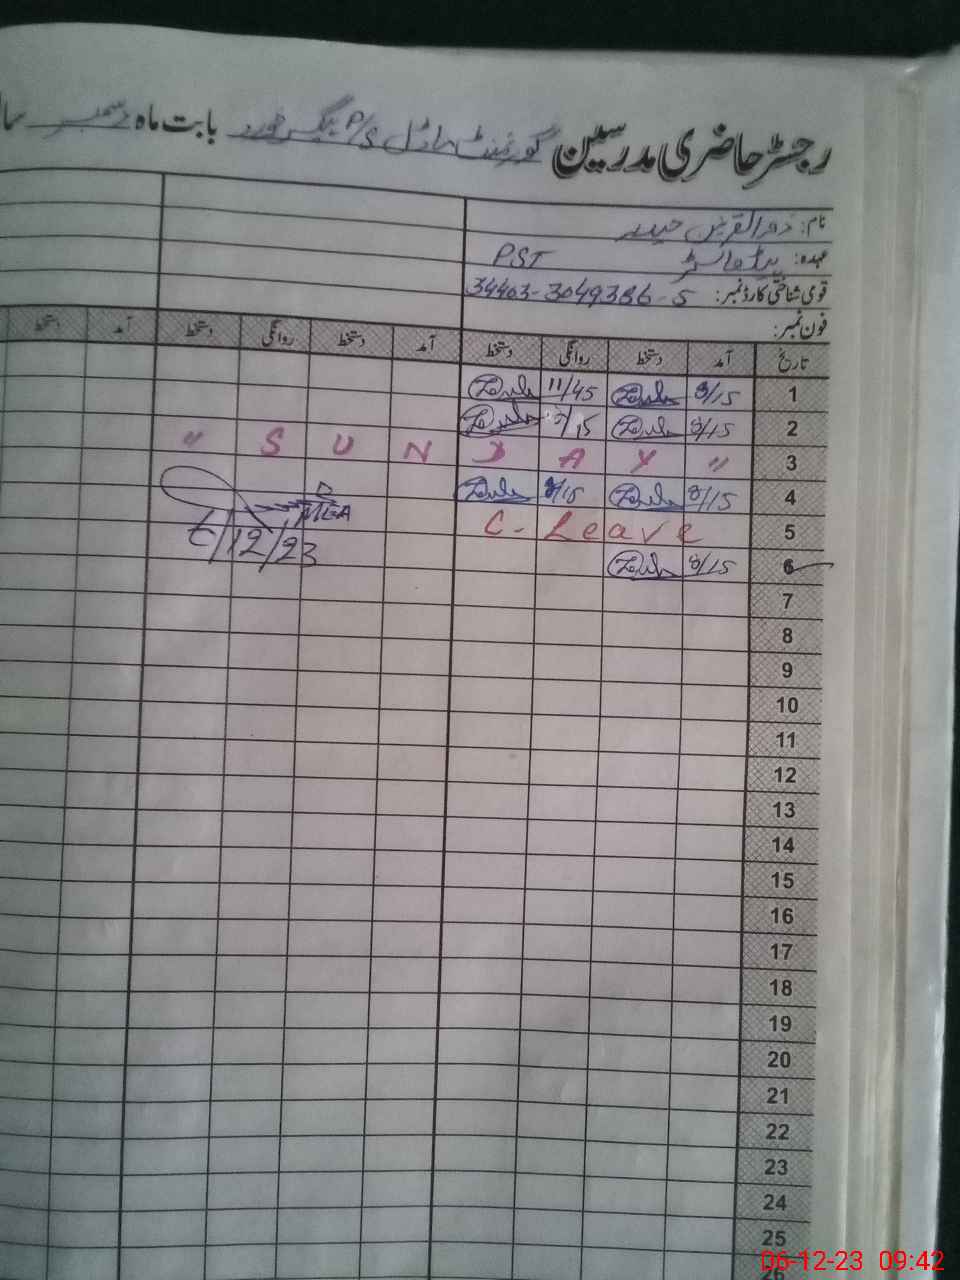 رجسٹر حاضری مدرسین گورنمنٹ ماڈل P/S بابت ماہ دسمبر
نام: ذوالقرنین حیدر
عہدہ: ہیڈ ماسٹر PST
قومی شناختی کارڈ نمبر: 34403-3049386-5
فون نمبر:
تاریخ آمد دستخط روانگی دستخط آمد دستخط روانگی دستخط آمد دستخط
1 8/15 11/45
2 8/15 /15
3 " S U N D A Y "
4 8/15 /15
5 C - Leave
6 8/15
MEA
6/12/23
7
8
9
10
11
12
13
14
15
16
17
18
19
20
21
22
23
24
25
26
06-12-23 09:42